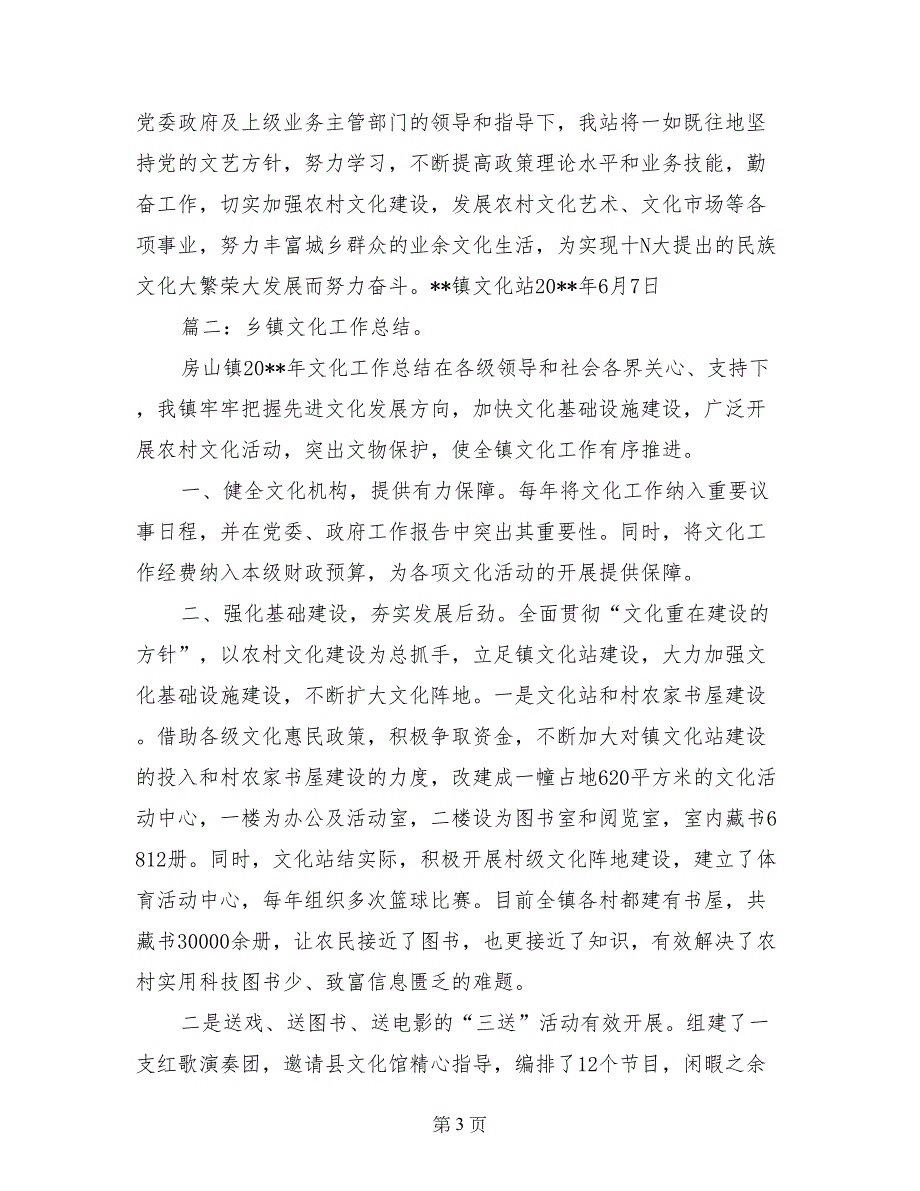 党委政府及上级业务主管部门的领导和指导下，我站将一如既往地坚
持党的文艺方针，努力学习，不断提高政策理论水平和业务技能，勤
奋工作，切实加强农村文化建设，发展农村文化艺术、文化市场等各
项事业，努力丰富城乡群众的业余文化生活，为实现十N大提出的民族
文化大繁荣大发展而努力奋斗。**镇文化站20**年6月7日
篇二：乡镇文化工作总结。
房山镇20**年文化工作总结在各级领导和社会各界关心、支持下
，我镇牢牢把握先进文化发展方向，加快文化基础设施建设，广泛开
展农村文化活动，突出文物保护，使全镇文化工作有序推进。
一、健全文化机构，提供有力保障。每年将文化工作纳入重要议
事日程，并在党委、政府工作报告中突出其重要性。同时，将文化工
作经费纳入本级财政预算，为各项文化活动的开展提供保障。
二、强化基础建设，夯实发展后劲。全面贯彻“文化重在建设的
方针”，以农村文化建设为总抓手，立足镇文化站建设，大力加强文
化基础设施建设，不断扩大文化阵地。一是文化站和村农家书屋建设
。借助各级文化惠民政策，积极争取资金，不断加大对镇文化站建设
的投入和村农家书屋建设的力度，改建成一幢占地620平方米的文化活
动中心，一楼为办公及活动室，二楼设为图书室和阅览室，室内藏书6
812册。同时，文化站结实际，积极开展村级文化阵地建设，建立了体
育活动中心，每年组织多次篮球比赛。目前全镇各村都建有书屋，共
藏书30000余册，让农民接近了图书，也更接近了知识，有效解决了农
村实用科技图书少、致富信息匮乏的难题。
二是送戏、送图书、送电影的“三送”活动有效开展。组建了一
支红歌演奏团，邀请县文化馆精心指导，编排了12个节目，闲暇之余
第 3 页